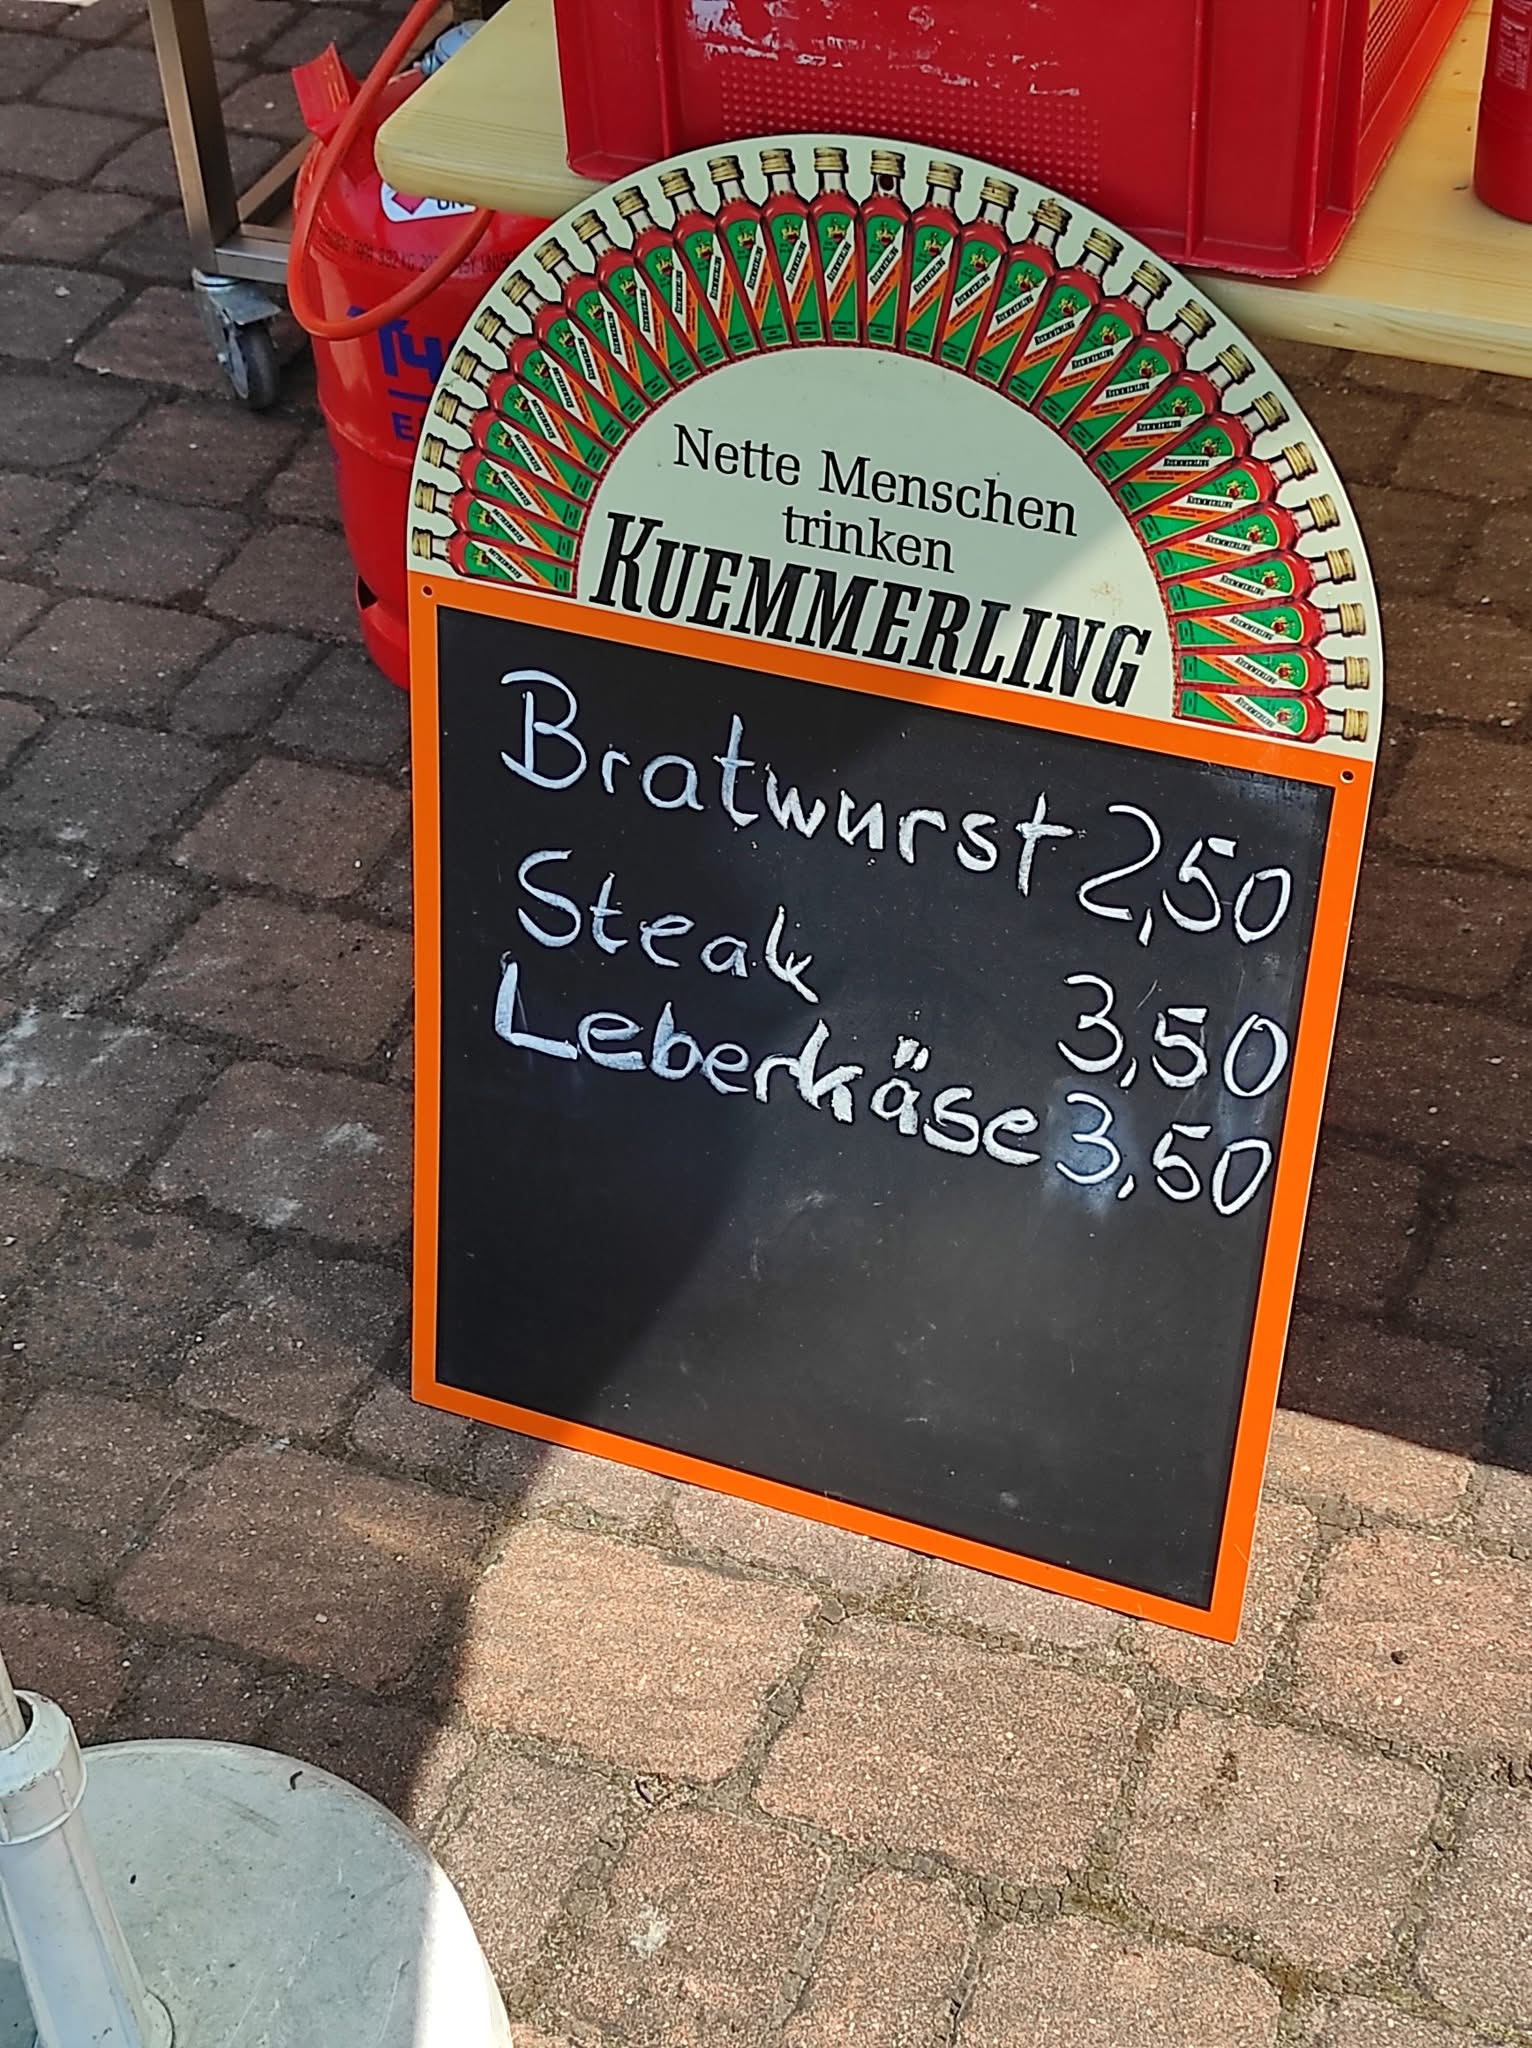 Nette Menschen
trinken
KUEMMERLING
Bratwurst 2,50
Steak 3,50
Leberkäse 3,50